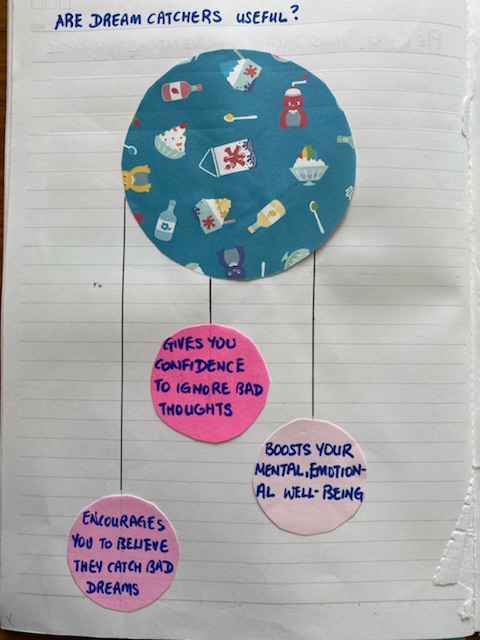 ARE DREAM CATCHERS USEFUL?
GIVES YOU
CONFIDENCE
TO IGNORE BAD
THOUGHTS
BOOSTS YOUR
MENTAL, EMOTION-
AL WELL-BEING
ENCOURAGES
YOU TO BELIEVE
THEY CATCH BAD
DREAMS